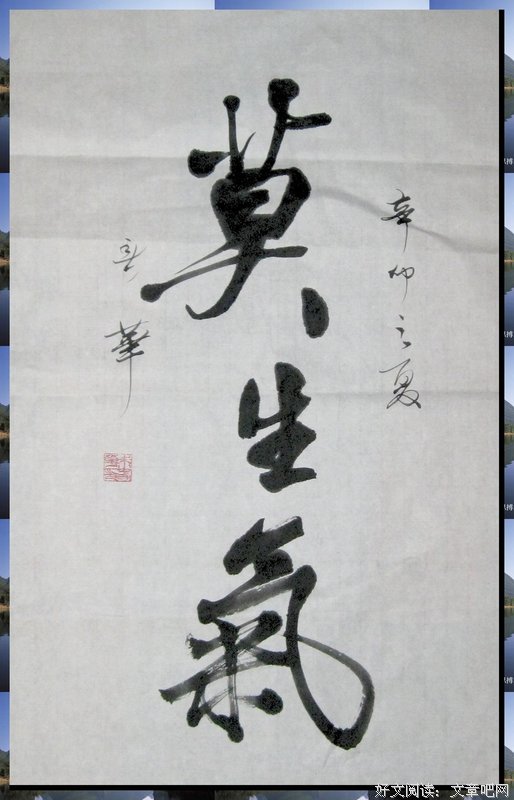 辛卯之夏
莫生氣
華
好文阅读:文章吧网